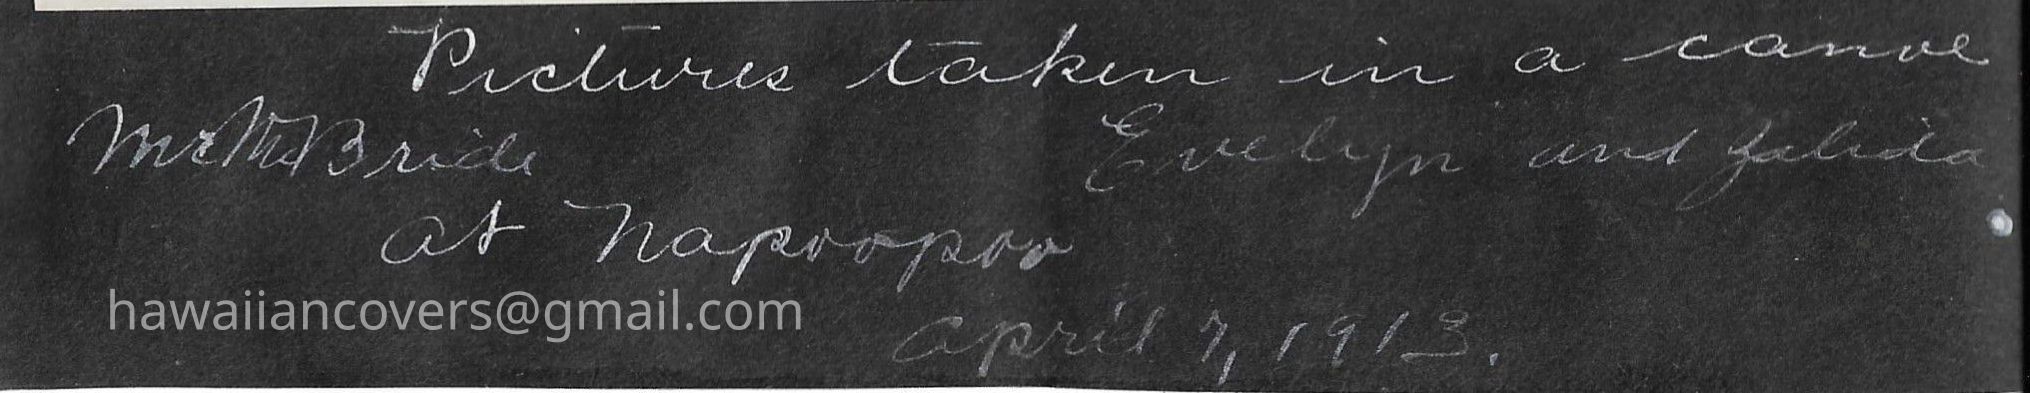 Pictures taken in a canoe
Mr McBride Evelyn and Zalida
at Napoopoo
hawaiiancovers@gmail.com
April 7, 1913.